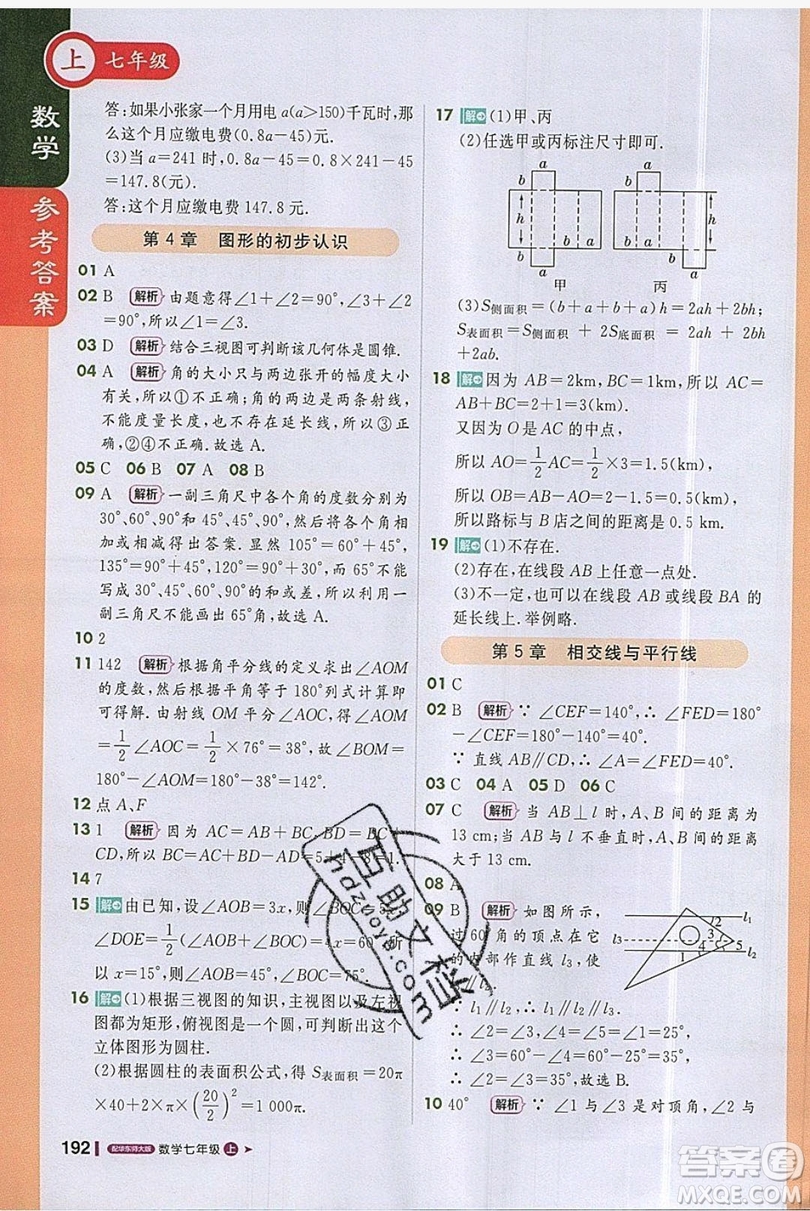 上 七年级
数学
参考答案
答:如果小张家一个月用电 a(a>150)千瓦时,那
么这个月应缴电费(0.8a-45)元.
(3)当 a=241 时,这个月应缴电费 0.8×241-45
=147.8(元).
答:这个月应缴电费 147.8 元.
第 4 章 图形的初步认识
01 A
02 B 解析 由题意得∠1+∠2=90°,∠3+∠2
=90°,所以∠1=∠3.
03 D 解析 结合三视图可判断该几何体是圆锥.
04 A 解析 角的大小只与两边张开的幅度大小
有关,所以①不正确;角的两边是两条射线,
不能度量长度,也不存在延长线,所以③正
确,②④不正确.故选 A.
05 C 06 B 07 A 08 B
09 A 解析 一副三角尺中各个角的度数分别为
30°、60°、90°、45°、45°、90°,然后将各个角相
加或相减得出答案. 显然 105°=60°+45°,
135°=90°+45°,120°=90°+30°. 而 65°不能
写成 30°、45°、60°、90°的和或差,所以利用一
副三角尺无法作出.故选 A.
10 2
11 142 解析 根据角平分线的定义求出∠AOM
的度数,然后根据平角等于 180°列式计算即
可得解. 由射线 OM 平分∠AOC,得∠AOM
=1/2∠AOC=1/2×76°=38°,故∠BOM=
180°-∠AOM=180°-38°=142°.
12 点 A、F
13 1 解析 因为 AC=AB+BC,BD=BC+
CD,所以 BC=AC+BD-AD=5+4-8=1.
14 7
15 解 由已知,设∠AOB=3x,则∠BOC=2x,
∠DOE=1/2(∠AOB+∠BOC)=4x=60°,所
以 x=15°,则∠AOB=45°.
16 解 (1)根据三视图的知识,主视图以及左视
图都为矩形,俯视图是一个圆,可判断出这个
立体图形为圆柱.
(2)根据圆柱的表面积公式,得 S表面积=20π
×40+2×π×(20/2)²=1000π.
192 配华东师大版 数学七年级 上
17 解 (1)甲、丙
(2)任选甲或丙标注尺寸即可.
a a
b b b b
h h h h
a a
甲 丙
(3)S侧面积=(b+a+b+a)h=2ah+2bh,
S表面积=S侧面积 + 2S底面积 = 2ah + 2bh
+2ab.
18 解 因为 AB=2km,BC=1km,所以 AC=
AB+BC=2+1=3(km).
又因为 O 是 AC 的中点,
所以 AO=1/2AC=1/2×3=1.5(km).
所以 OB=AB-AO=2-1.5=0.5(km).
所以路标与 B 店之间的距离是 0.5 km.
19 解 (1)不存在.
(2)存在,在线段 AB 上任意一点处.
(3)不一定,也可以在线段 AB 或线段 BA 的
延长线上. 举例略.
第 5 章 相交线与平行线
01 C
02 B 解析 ∵∠CEF=140°,∴∠FED=180°
-∠CEF=180°-140°=40°.
∵直线 AB∥CD,∴∠A=∠FED=40°.
03 C 04 A 05 D 06 C
07 C 解析 当 AB⊥l 时,A、B 间的距离为
13 cm;当 AB 与 l 不垂直时,A、B 间的距离
大于 13 cm.
08 A
09 B 解析 如图所示,
过 60°角的顶点在它
的内部作直线 l₃,使
l₃∥l₁.
∵l₁∥l₂,∴l₁∥l₂∥l₃.
∴∠2=∠4,∠3=∠5.
∵∠1=25°,∴∠2=∠4=∠1=25°,
∴∠3=60°-∠4=60°-25°=35°,
∴∠5=∠3=35°,故选 B.
l₁
l₃
l₂
2 3 5 1 4
10 40° 解析 ∵∠1 与∠3 是对顶角,∠2 与
互助文档
hdzuoye.com
答案圈
MXQE.COM